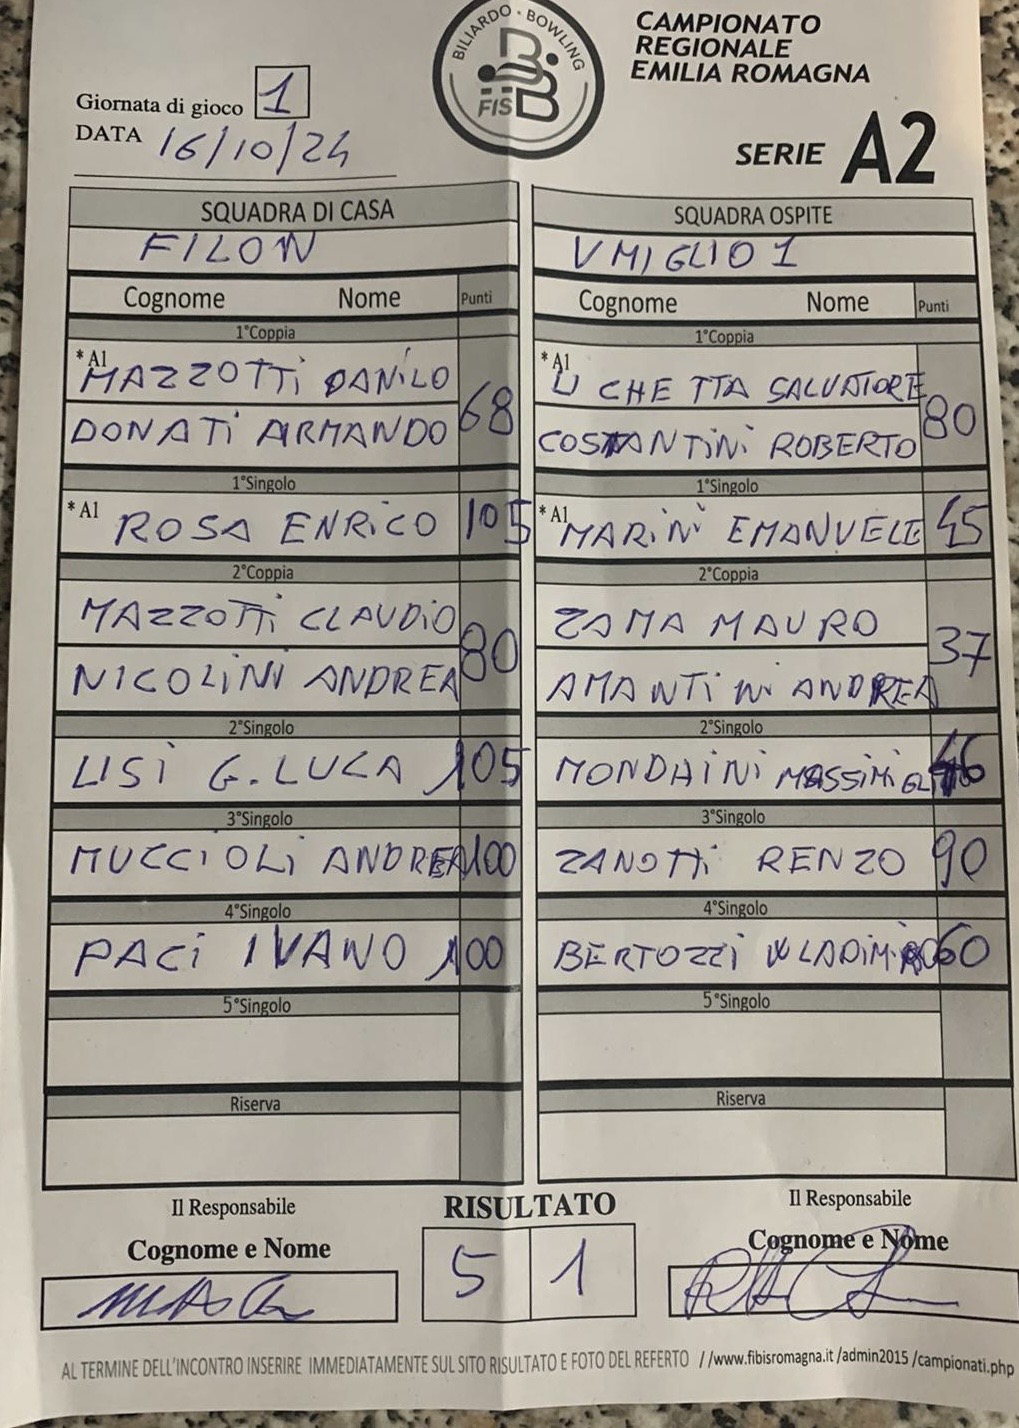 BILIARDO • BOWLING
FISBB
CAMPIONATO
REGIONALE
EMILIA ROMAGNA
SERIE A2
Giornata di gioco 1
DATA 16/10/24
SQUADRA DI CASA SQUADRA OSPITE
FILON VMIGLIO 1
Cognome Nome Punti Cognome Nome Punti
1°Coppia 1°Coppia
*A1 MAZZOTTI DANILO 68 *A1 U CHETTA SALVATORE 80
DONATI ARMANDO COSTANTINI ROBERTO
1°Singolo 1°Singolo
*A1 ROSA ENRICO 105 *A1 MARINI EMANUELE 45
2°Coppia 2°Coppia
MAZZOTTI CLAUDIO 80 ZAMA MAURO 37
NICOLINI ANDREA AMANTINI ANDREA
2°Singolo 2°Singolo
LISI G. LUCA 105 MONDAINI 46
3°Singolo 3°Singolo
MUCCIOLI ANDREA 100 ZANOTTI RENZO 90
4°Singolo 4°Singolo
PACI IVANO 100 BERTOZZI 60
5°Singolo 5°Singolo
Riserva Riserva
Il Responsabile RISULTATO Il Responsabile
Cognome e Nome 5 1 Cognome e Nome
AL TERMINE DELL'INCONTRO INSERIRE IMMEDIATAMENTE SUL SITO RISULTATO E FOTO DEL REFERTO //www.fibisromagna.it /admin2015 /campionati.php